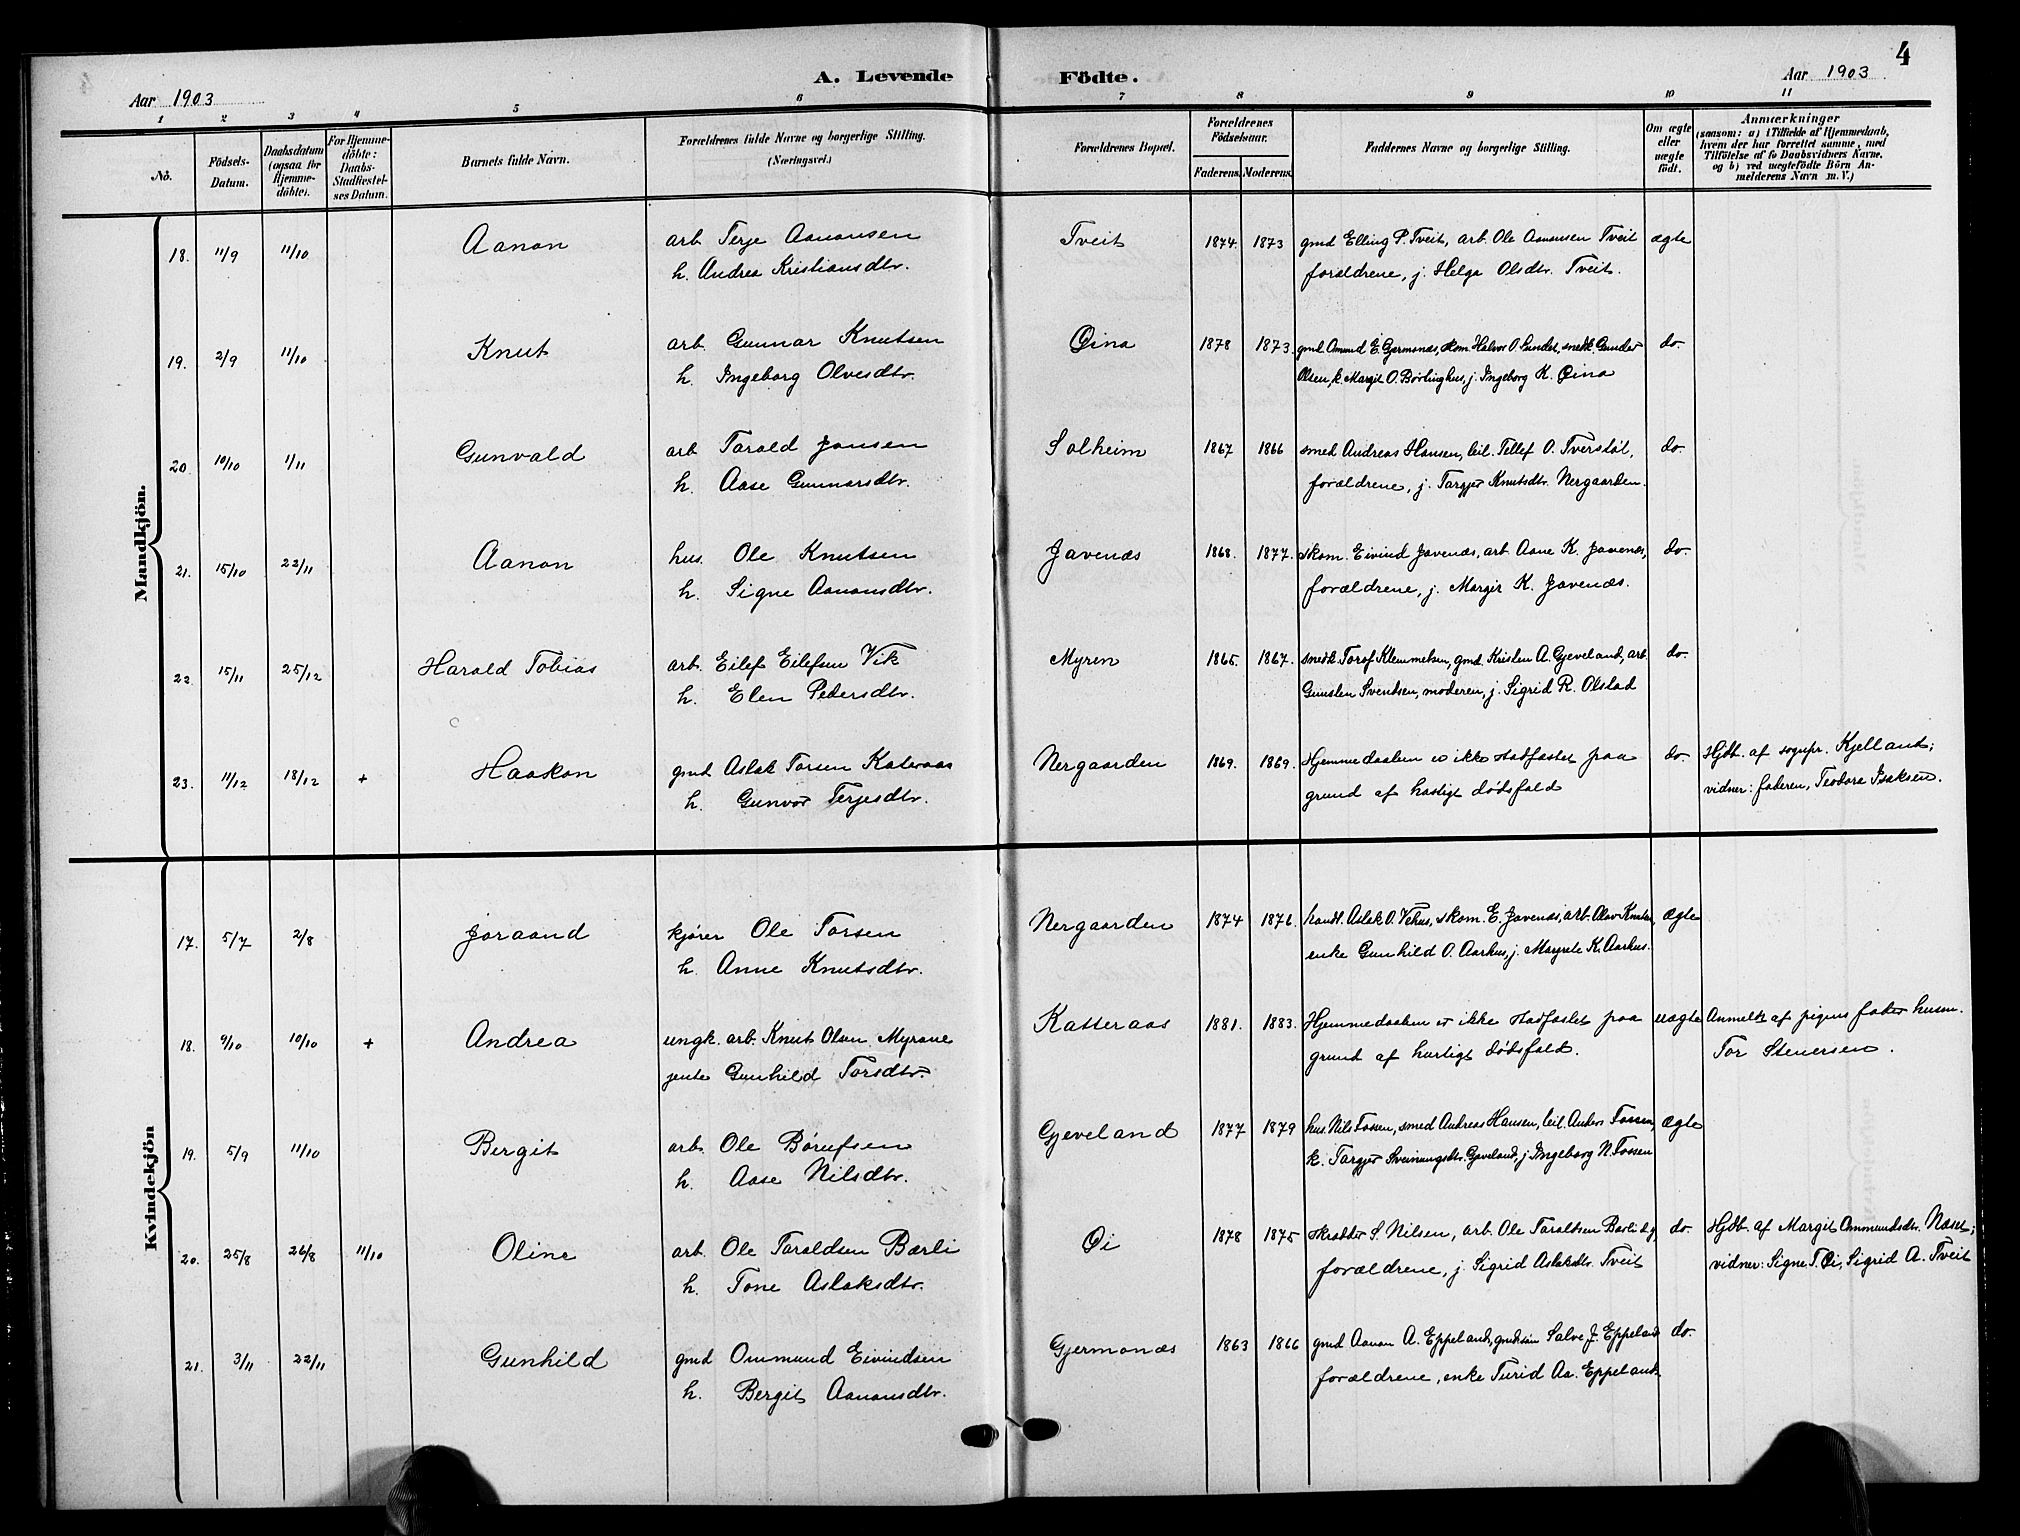 4
A. Levende Födte.
Aar 1903
Aar 1903
1 2 3 4 5 6 7 8 9 10 11
No.
Födsels-Datum.
Daabsdatum (ogsaa for Hjemme-döbte).
For Hjemme-döbte: Daabs-Stadfæstel-ses Datum.
Barnets fulde Navn.
Forældrenes fulde Navne og borgerlige Stilling. (Næringsvei.)
Forældrenes Bopæl.
Forældrenes Födselsaar.
Faderens. Moderens.
Faddernes Navne og borgerlige Stilling.
Om ægte eller uægte födt.
Anmærkninger
(saasom: a) i Tilfælde af Hjemmedaab, hvem der har forrettet samme, med Tilföielse af to Daabsvidners Navne, og b) ved uægtefödte Börn An-melderens Navn m. V.)
Mandkjön.
18. 11/9 11/10 Aanon arb. Terje Aanonsen Tveit 1874. 1873 gmd Elling P. Tveit, arb. Ole Aanonsen Tveit ægte
h. Andrea Kristiansdtr. forældrene, j. Helga Olsdtr. Tveit.
19. 2/9 11/10 Knut arb. Gunnar Knutsen Øina 1878 1873. gmd. Omund E. Gjermonæs, skom. Halvor O. Lundet, snedk. Gunder do.
h. Ingeborg Olvesdtr. Olsen, k. Margit O. Børlinghus, j. Ingeborg K. Øina
20. 10/10 1/11 Gunvald arb. Tarald Jonsen Solheim 1867 1866 smed Andreas Hansen, leil. Tellef O. Tverstøl, do.
h. Aase Gunnarsdtr. forældrene, j. Targjer Knutsdtr. Nergaarden.
21. 15/10 22/11 Aanon hus. Ole Knutsen Javenæs 1868. 1877. skom. Eivind Javenæs, arb. Aane K. Javenæs, do.
h. Signe Aanonsdtr. forældrene, j. Margit K. Javenæs.
22. 15/11 25/12 Harald Tobias arb. Eilef Eilefsen Vik Myren 1865. 1867. snedk. Torof Klemmetsen, gmd. Kristen A. Gjeveland, arb. do.
h. Elen Petersdtr. Gunsten Svendsen, moderen, j. Sigrid R. Olstad
23. 11/12 18/12 + Haakon gmd Aslak Torsen Kateraas Nergaarden 1869. 1869. Hjemmedaaben er ikke stadfæstet paa do. Hjdb. af sognepr. Kjelland;
h. Gunvor Terjesdtr. grund af hastigt dødsfald vidner: faderen, Teodora Isaksen.
Kvindekjön
17. 5/7 2/8 Joraand kjører Ole Torsen Nergaarden 1874 1876. handl. Aslak O. Vehus, skom. E. Javenæs, arb. Olav Knutsen, ægte
h. Anne Knutsdtr. enke Gunhild O. Aarhus, j. Margrete K. Aarhus.
18. 9/10 10/10 + Andrea ungk. arb. Knut Olsen Myrane Katteraas 1881. 1883. Hjemmedaaben er ikke stadfæstet paa uægte Anmeldt af pigens fader husm.
jente Gunhild Torsdtr. grund af hurtigt dødsfald. Tor Stenersen.
19. 5/9 11/10 Bergit arb. Ole Børufsen Gjeveland 1877 1879 hus. Nils Fossen, smed Andreas Hansen, leil. Anders Fossen, ægte
h. Aase Nilsdtr. k. Targjer Sveinungsdtr. Gjeveland, j Ingeborg N. Fossen
20. 25/8 26/8 11/10 Oline arb. Ole Taraldsen Bærli Øi 1878 1875 skrædder S. Nilsen, arb. Ole Taraldsen Bærli og do. Hjdb. af Margit Ommundsdtr. Næset;
h. Tone Aslaksdtr. forældrene, j Sigrid Aslaksdtr. Tveit vidner: Signe T. Øi, Sigrid A. Tveit
21. 3/11 22/11 Gunhild gmd Ommund Eivindsen Gjermonæs 1863 1866 gmd Aanon A. Eppeland, gmdsøn Salve J. Eppeland do.
h. Bergit Aanonsdtr. forældrene, enke Turid Aa. Eppeland.